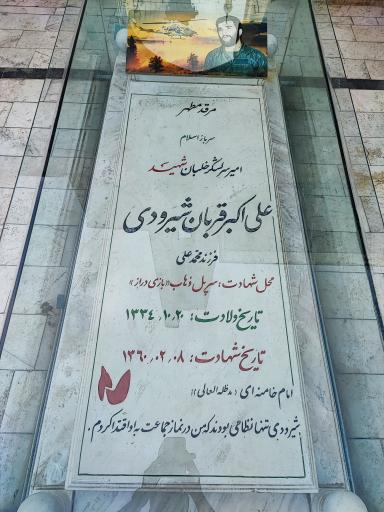 مرقد مطهر
سرباز اسلام
امیر سرلشگر خلبان شهید
علی اکبر قربان شیرودی
فرزند محمد علی
محل شهادت: سرپل ذهاب «بازی دراز»
تاریخ ولادت: ۱۳۳۴٫۱۰٫۲۰
تاریخ شهادت: ۱۳۶۰٫۰۲٫۰۸
امام خامنه ای (مدظله العالی):
شیرودی تنها نظامی بود که من در نماز جماعت به او اقتدا کردم.